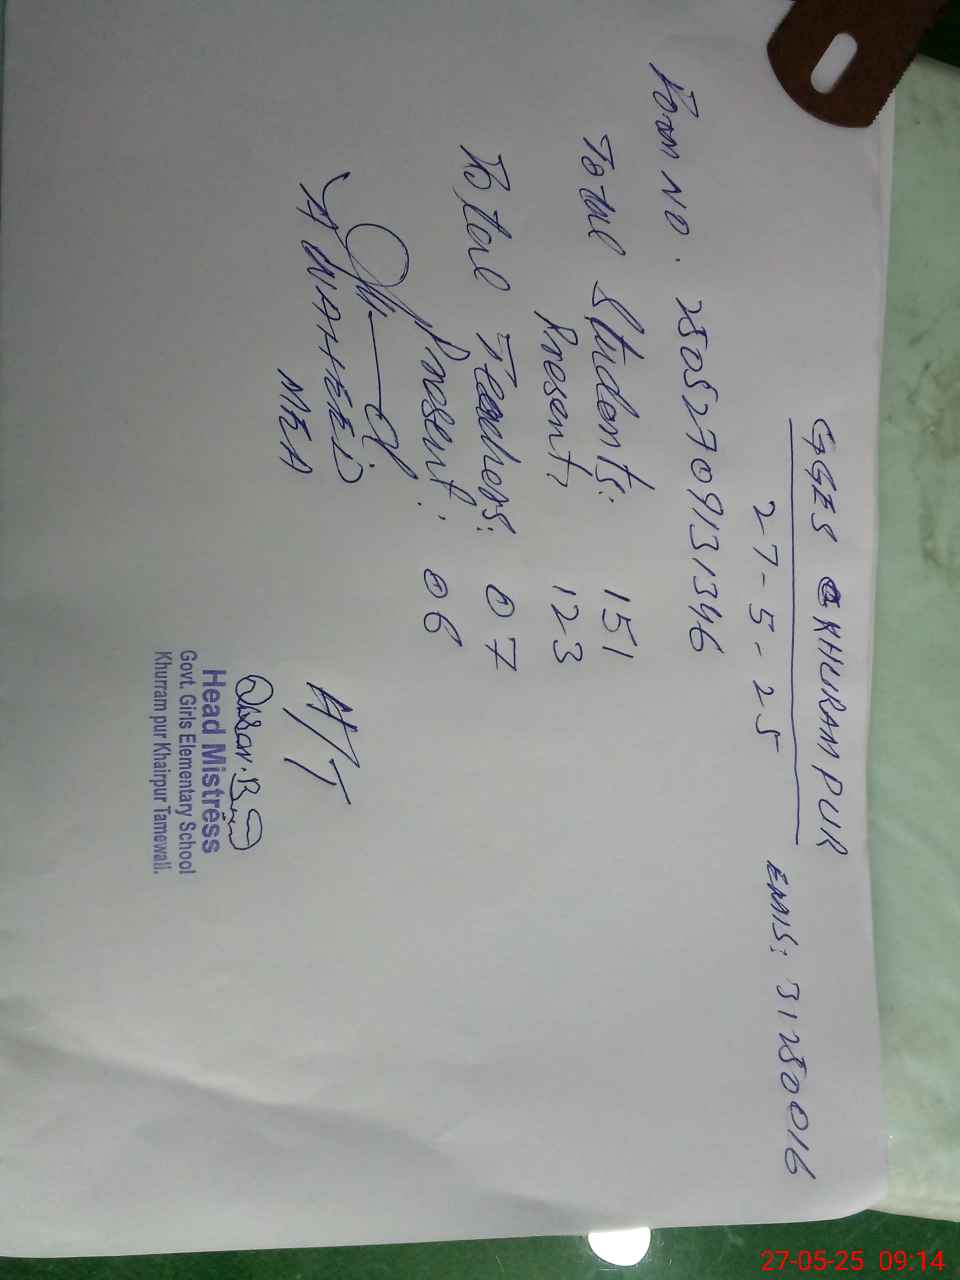 GGES KHURAMPUR
27-5-25
EMIS: 31280016
Form No. 28052709131346
Total Students: 151
Present: 123
Total Teachers: 07
Present: 06
A WAHEED
MEA
H/T
Head Mistress
Govt. Girls Elementary School
Khurram pur Khairpur Tamewali.
27-05-25 09:14